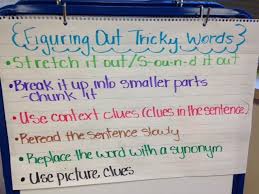 Figuring Out Tricky Words
• Stretch it out/S-o-u-n-d it out
• Break it up into smaller parts
- Chunk it
• Use context clues (clues in the sentence)
• Reread the sentence slowly
• Replace the word with a synonym
• Use picture clues